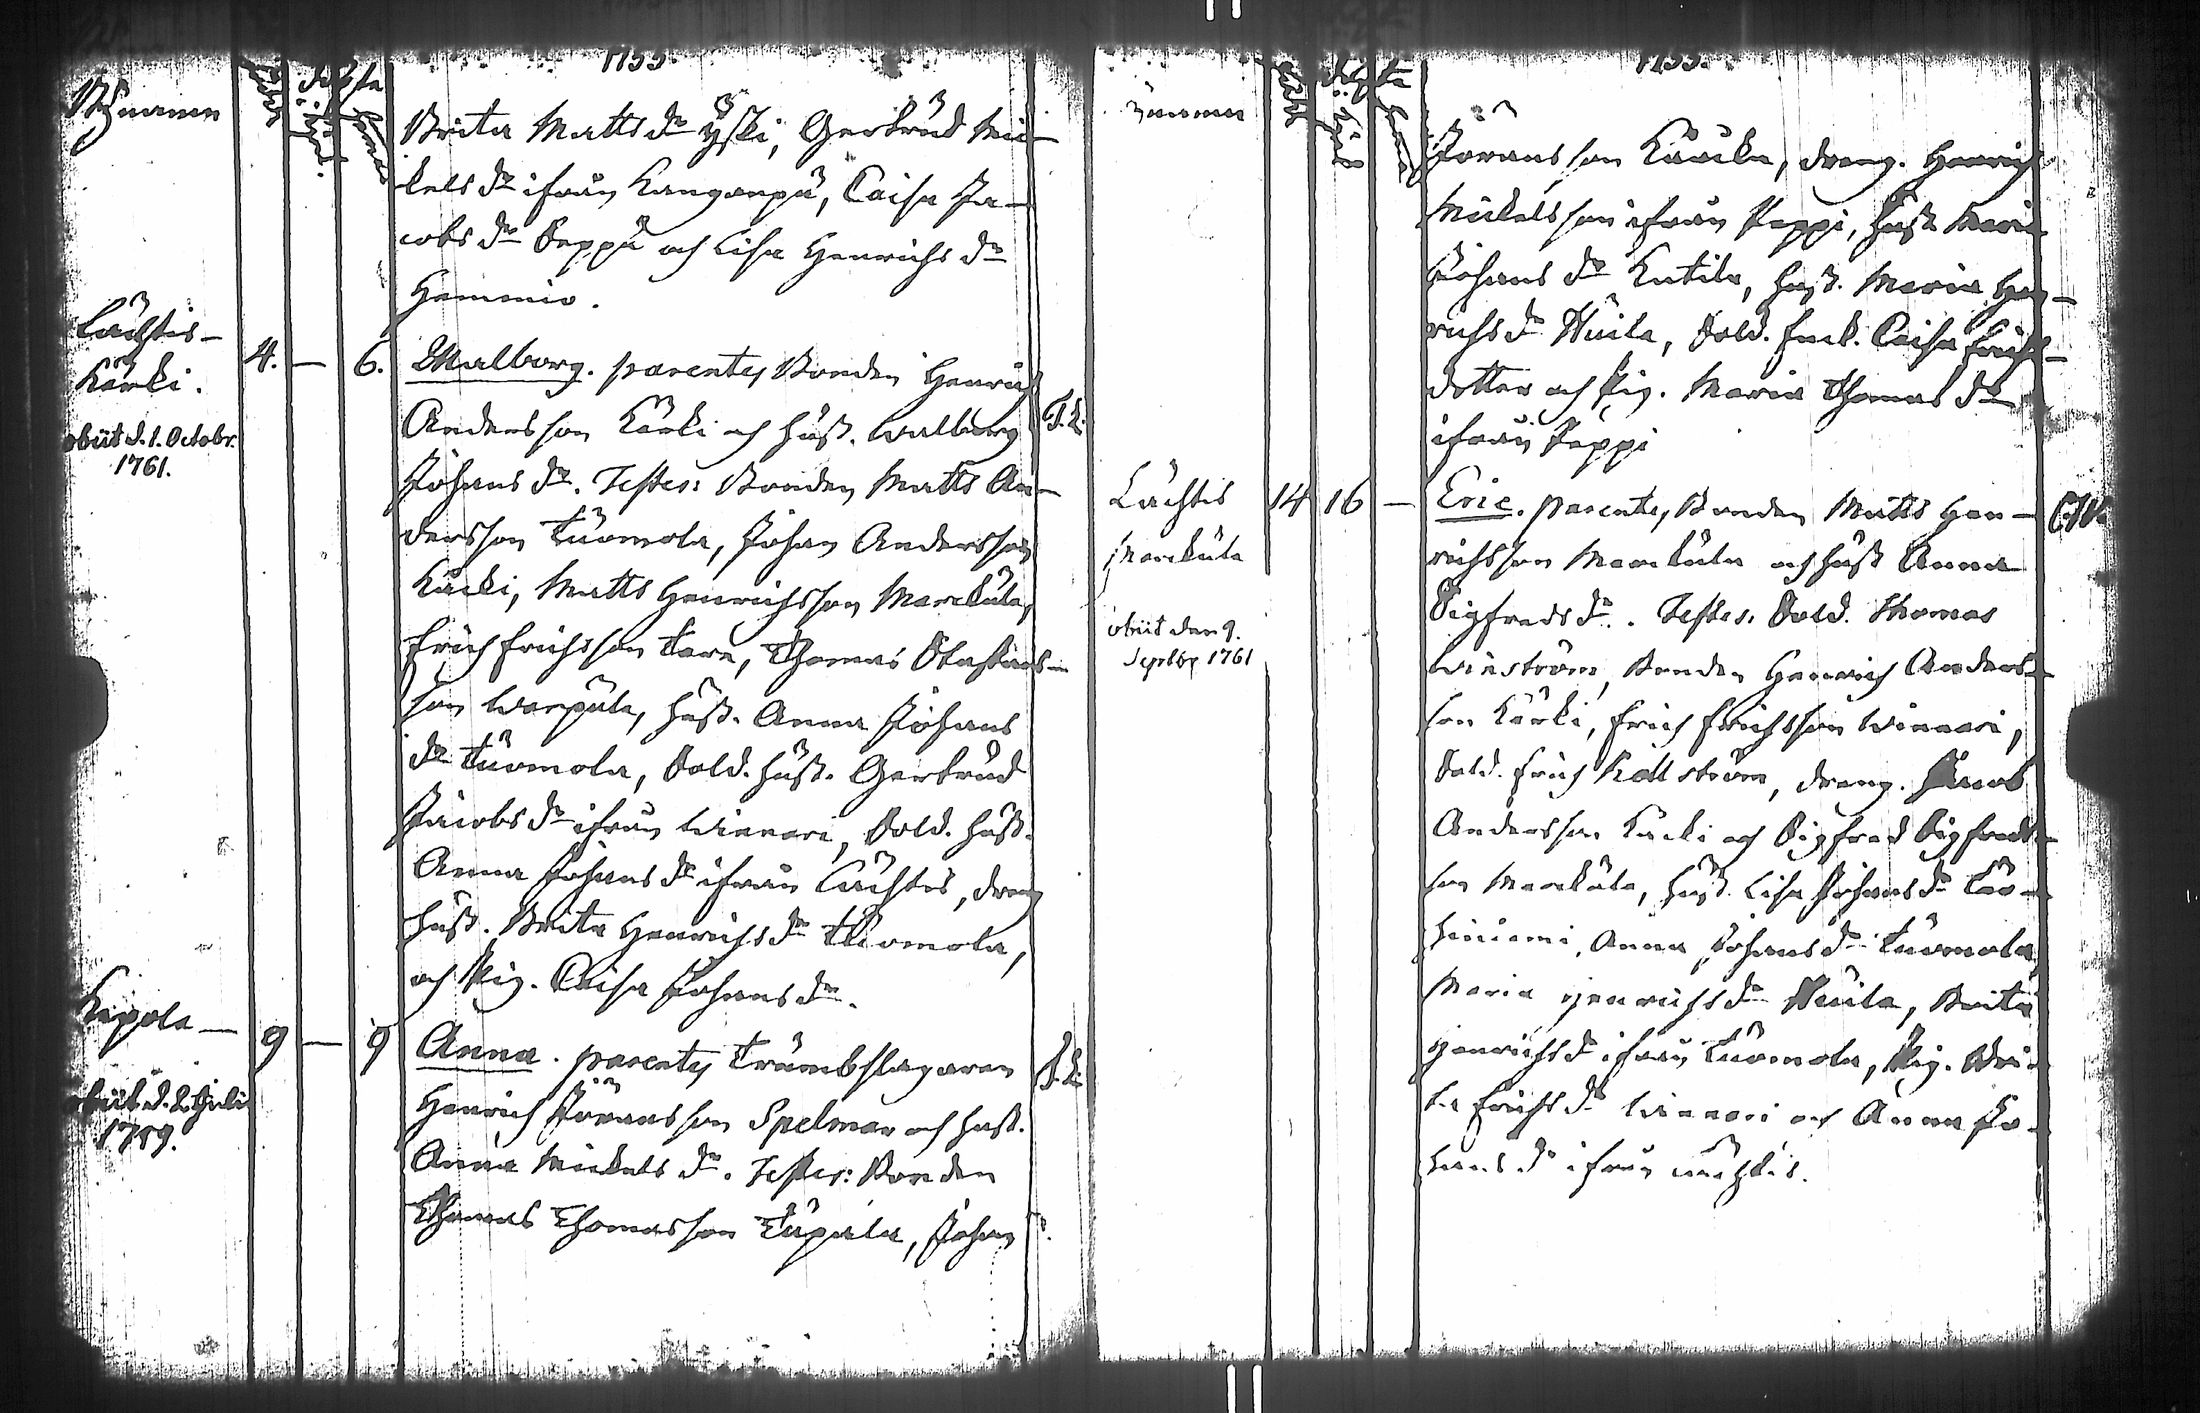 1755.
Brita Mattsdr Yski, Gertrud Mi-
kelsdr ifrån Kangonpä, Caisa Ja-
cobsdr Seppä och Lisa Henrichsdr
Hemmio.
Lachtis-
Kärki.
obiit d. 1. Octobr.
1761.
4. — 6.
Walborg. parentes Bonden Henrich
Andersson Kärki och hust. Walborg
Johansdr. Testes: Bonden Matts An-
dersson Tuomola, Johan Andersson
Kärki, Matts Henrichsson Marckula,
Erich Erichsson Tara, Thomas Staphans-
son Warpula, hust. Anna Johans
dr Tuomola, Sold. hust. Gertrud
Jacobsdr ifrån Winnari, Sold. hust.
Anna Johansdr ifrån Lachtis, dreng
hust. Brita Henrichsdr Tuomola,
och Pig. Caisa Johansdr.
Kepola —
obiit d. 2 Julii
1759.
9 — 9
Anna. parentes Trumbslagaren
Henrich Jöransson Spelman och hust.
Anna Mickelsdr. Testes: Bonden
Thomas Thomasson Tupala, Johan
1755.
Jöransson Kaucka, dreng. Henrich
Mickelsson ifrån Peppi, hust. Maria
Johansdr Kutila, hust. Maria Hen-
richsdr Nuila, Sold. Enk. Caisa Erichs-
dotter och Pig. Maria Thomasdr
ifrån Peppi
Lachtis
Marckula
obiit den 9.
Septbr 1761
14 16 —
Eric. parentes Bonden Matts Hen-
richsson Marckula och hust Anna
Sigfredsdr. Testes. Sold. Thomas
Winström, Bonden Henrich Anders-
son Kärki, Erich Erichsson Winnari,
Sold. Erich Kållström, dreng. Jacob
Andersson Kärki och Sigfred Sigfreds-
son Marckula, hust. Lisa Johansdr Läu-
hiniemi, Anna Johansdr Tuomola
Maria Henrichsdr Nuila, Brita
Henrichsdr ifrån Tuomola, Pig. Bri-
ta Erichsdr Winnari och Anna Jo-
hansdr ifrån Lachtis.